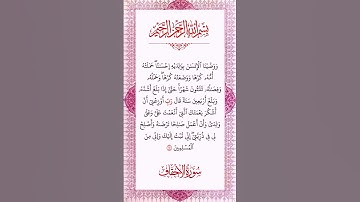 بِسْمِ اللَّهِ الرَّحْمَٰنِ الرَّحِيمِ
وَوَصَّيْنَا الْإِنسَانَ بِوَالِدَيْهِ إِحْسَانًا حَمَلَتْهُ
أُمُّهُ كُرْهًا وَوَضَعَتْهُ كُرْهًا وَحَمْلُهُ
وَفِصَالُهُ ثَلَاثُونَ شَهْرًا حَتَّىٰ إِذَا بَلَغَ أَشُدَّهُ
وَبَلَغَ أَرْبَعِينَ سَنَةً قَالَ رَبِّ أَوْزِعْنِي أَنْ
أَشْكُرَ نِعْمَتَكَ الَّتِي أَنْعَمْتَ عَلَيَّ وَعَلَىٰ
وَالِدَيَّ وَأَنْ أَعْمَلَ صَالِحًا تَرْضَاهُ وَأَصْلِحْ
لِي فِي ذُرِّيَّتِي إِنِّي تُبْتُ إِلَيْكَ وَإِنِّي مِنَ
الْمُسْلِمِينَ
سُورَةُ الْأَحْقَافِ